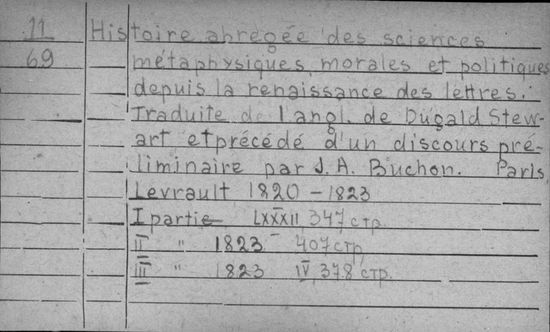 11 Histoire abregée des sciences
69 métaphysiques, morales et politiques
depuis la renaissance des lettres.
Traduite de l'angl. de Dugald Stew-
art et précédé d'un discours pré-
liminaire par J. A. Buchon. Paris,
Levrault, 1820 - 1823
I partie LXXXII 347 стр.
II " 1823 407 стр.
III " 1823 IV, 378 стр.